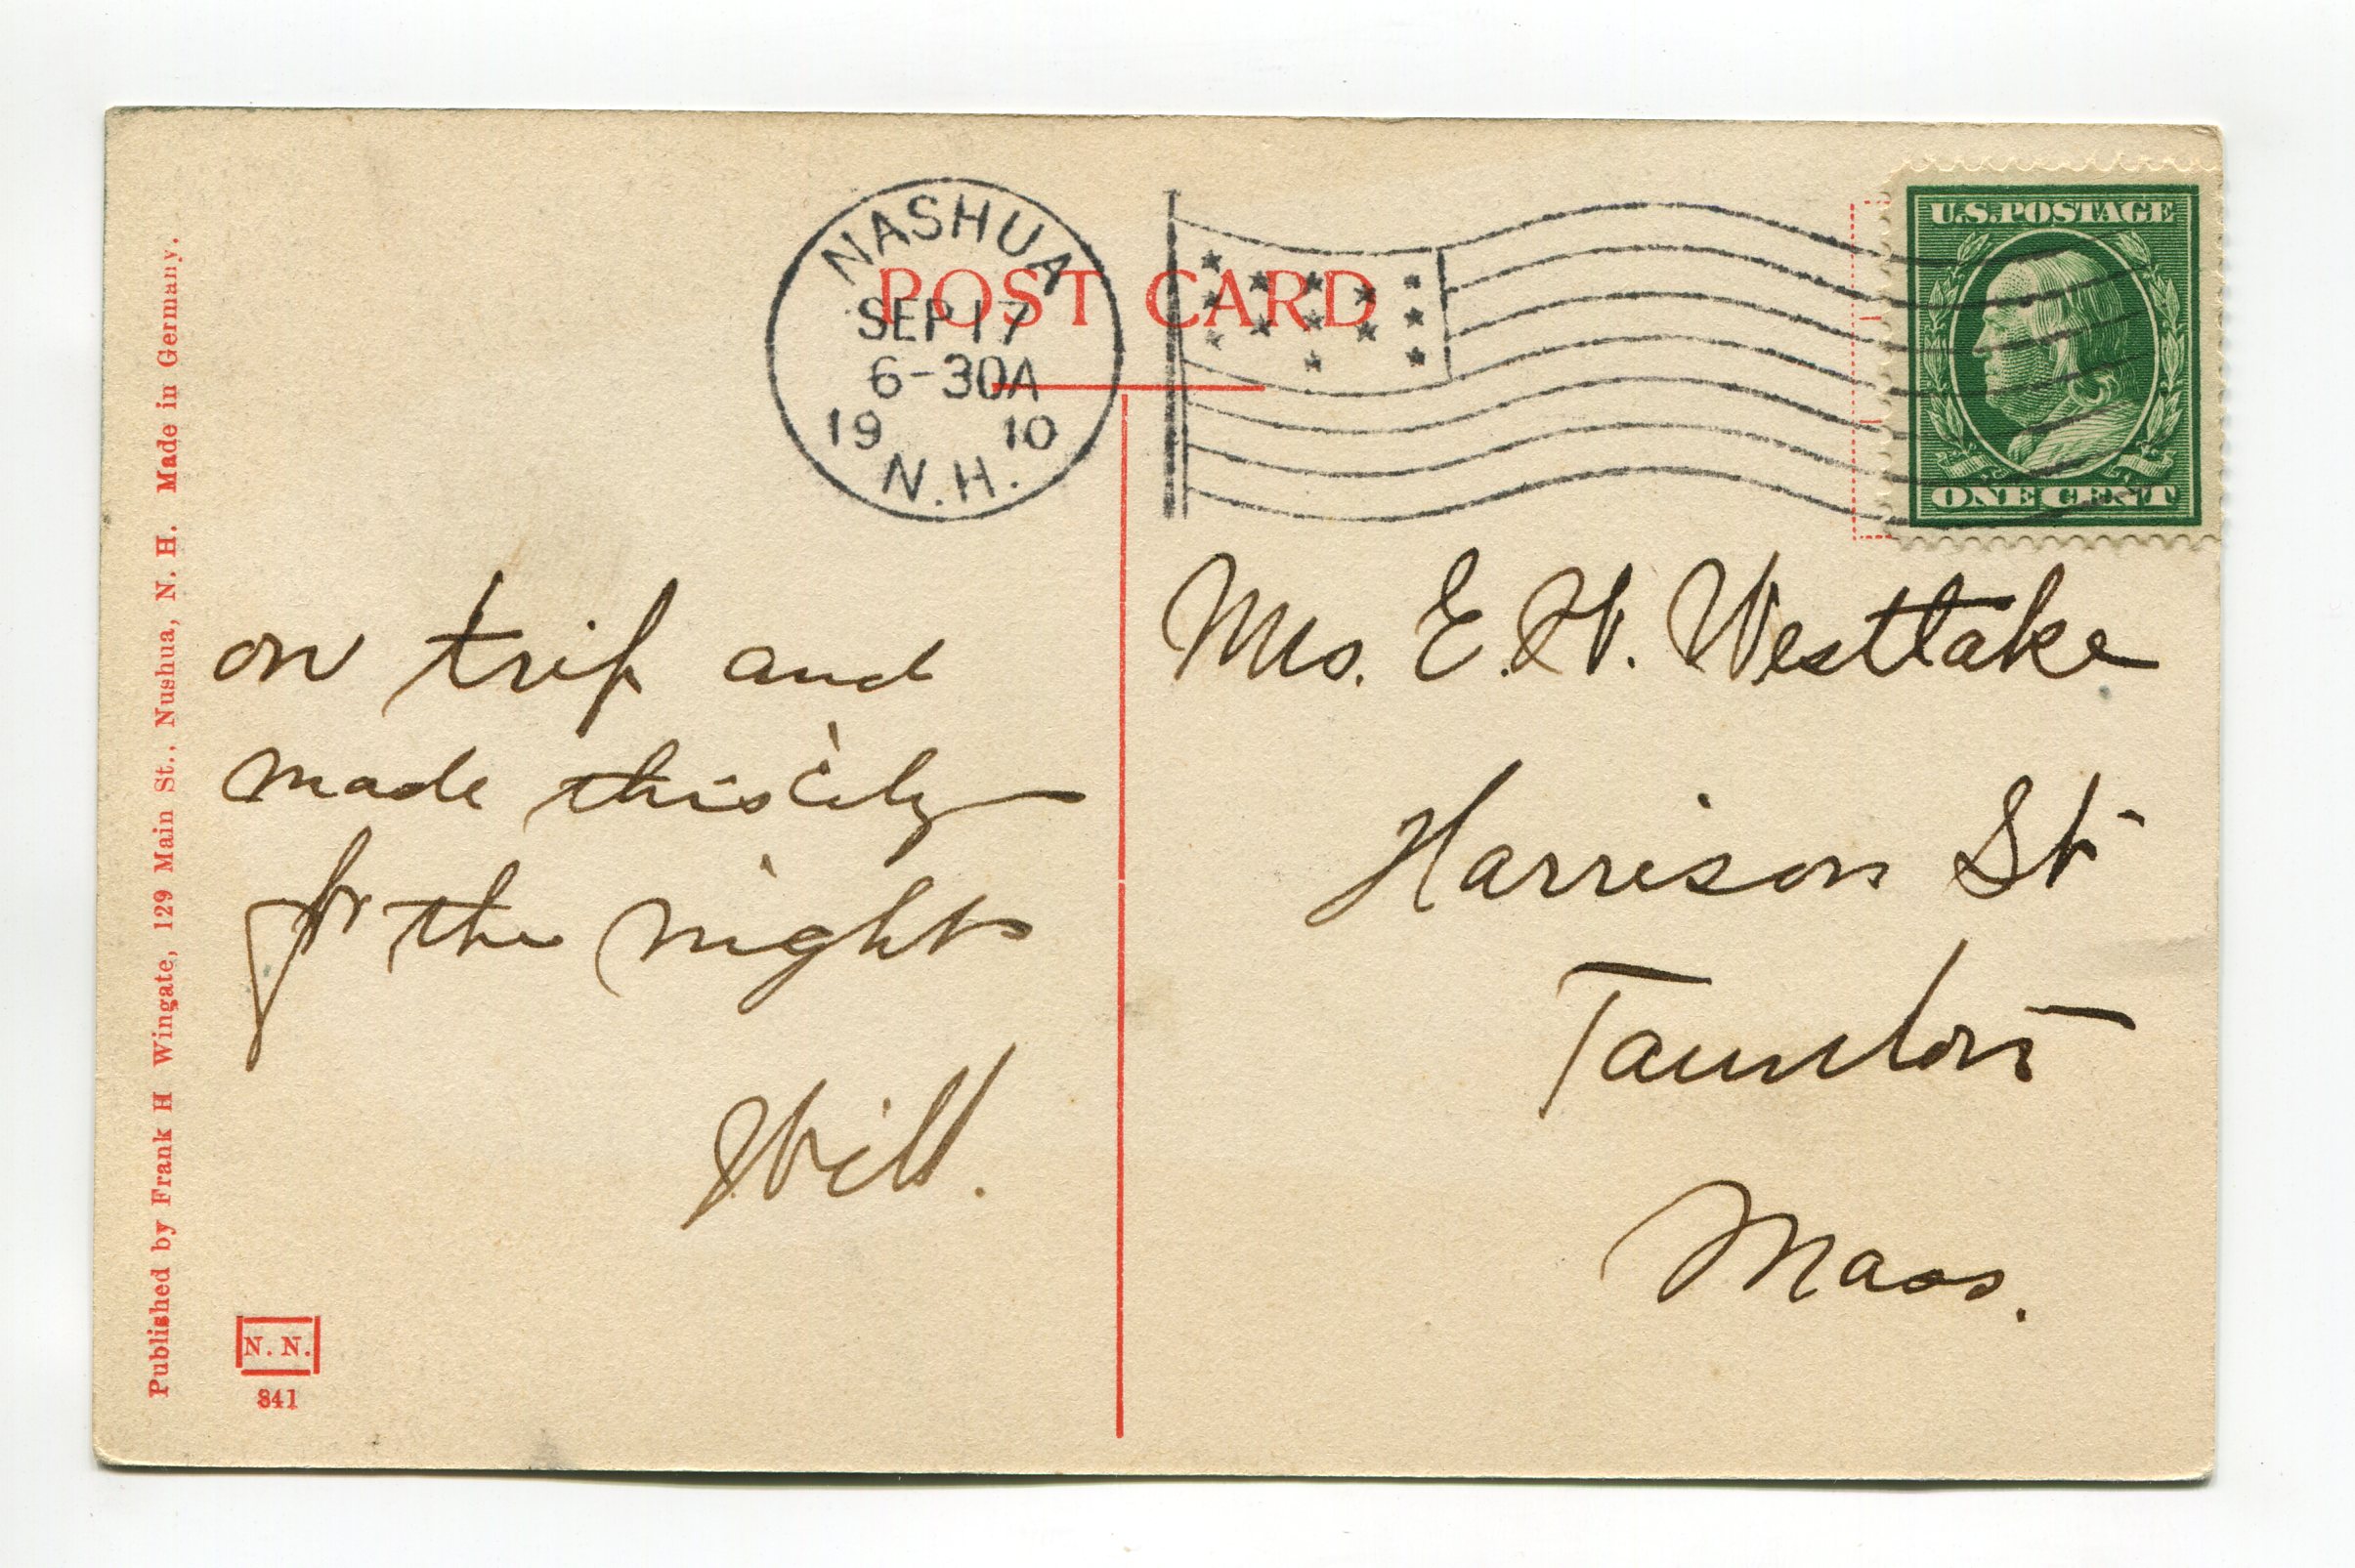 NASHUA
SEP 17
6-30A
19 10
N.H.
POST CARD
U.S. POSTAGE
ONE CENT
on trip and
made this city
for the night
Will.
Mrs. E. H. Westlake
Harrison St
Taunton
Mass.
Published by Frank H Wingate, 129 Main St., Nushua, N. H. Made in Germany.
N. N.
841